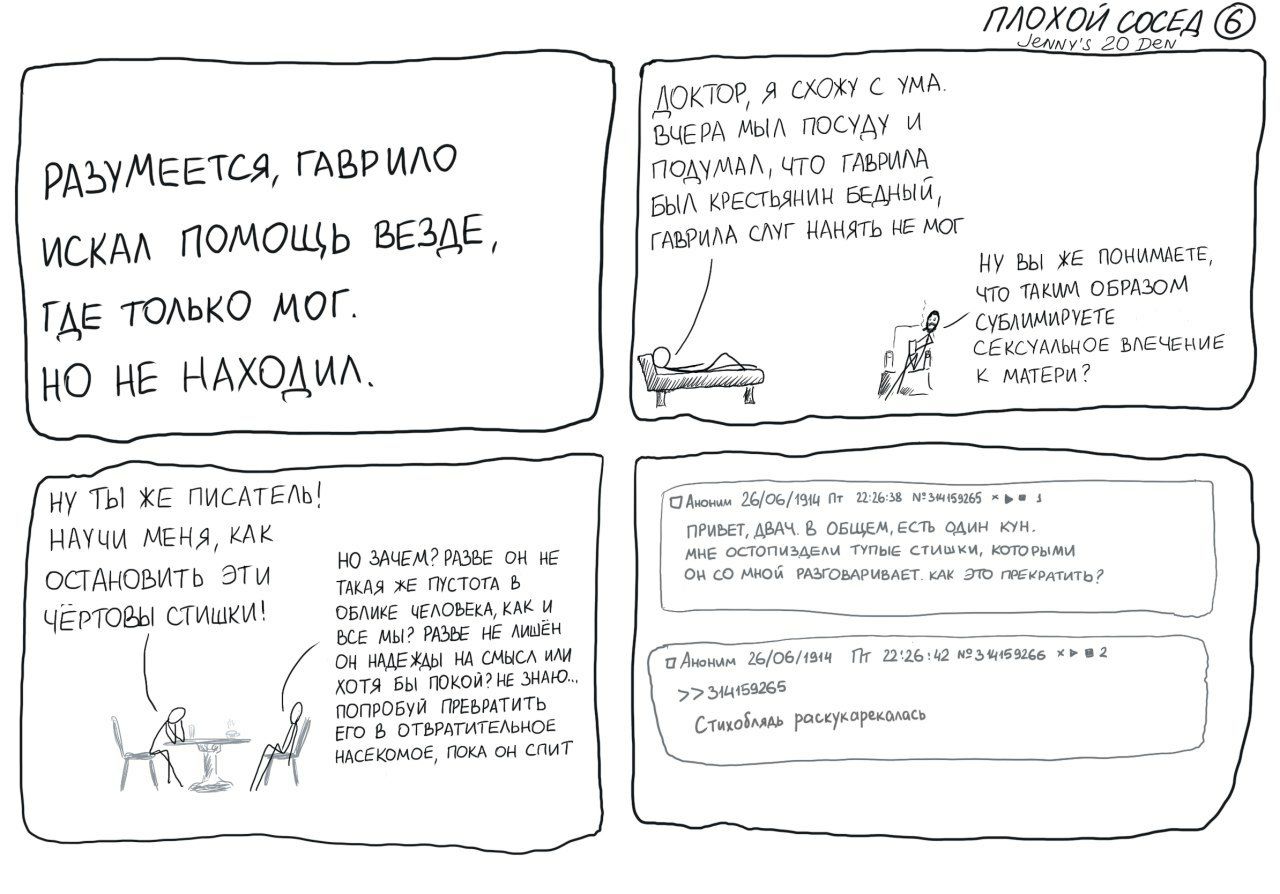 ПЛОХОЙ СОСЕД 6
Jenny's 20 Den
РАЗУМЕЕТСЯ, ГАВРИЛО
ИСКАЛ ПОМОЩЬ ВЕЗДЕ,
ГДЕ ТОЛЬКО МОГ.
НО НЕ НАХОДИЛ.
ДОКТОР, Я СХОЖУ С УМА.
ВЧЕРА МЫЛ ПОСУДУ И
ПОДУМАЛ, ЧТО ГАВРИЛА
БЫЛ КРЕСТЬЯНИН БЕДНЫЙ,
ГАВРИЛА СЛУГ НАНЯТЬ НЕ МОГ
НУ ВЫ ЖЕ ПОНИМАЕТЕ,
ЧТО ТАКИМ ОБРАЗОМ
СУБЛИМИРУЕТЕ
СЕКСУАЛЬНОЕ ВЛЕЧЕНИЕ
К МАТЕРИ?
НУ ТЫ ЖЕ ПИСАТЕЛЬ!
НАУЧИ МЕНЯ, КАК
ОСТАНОВИТЬ ЭТИ
ЧЁРТОВЫ СТИШКИ!
НО ЗАЧЕМ? РАЗВЕ ОН НЕ
ТАКАЯ ЖЕ ПУСТОТА В
ОБЛИКЕ ЧЕЛОВЕКА, КАК И
ВСЕ МЫ? РАЗВЕ НЕ ЛИШЁН
ОН НАДЕЖДЫ НА СМЫСЛ ИЛИ
ХОТЯ БЫ ПОКОЙ? НЕ ЗНАЮ...
ПОПРОБУЙ ПРЕВРАТИТЬ
ЕГО В ОТВРАТИТЕЛЬНОЕ
НАСЕКОМОЕ, ПОКА ОН СПИТ
Аноним 26/06/1914 Пт 22:26:38 №314159265 × ▶ ■ 1
ПРИВЕТ, ДВАЧ. В ОБЩЕМ, ЕСТЬ ОДИН КУН.
МНЕ ОСТОПИЗДЕЛИ ТУПЫЕ СТИШКИ, КОТОРЫМИ
ОН СО МНОЙ РАЗГОВАРИВАЕТ. КАК ЭТО ПРЕКРАТИТЬ?
Аноним 26/06/1914 Пт 22:26:42 №314159266 × ▶ ■ 2
>>314159265
Стихоблядь раскукарекалась